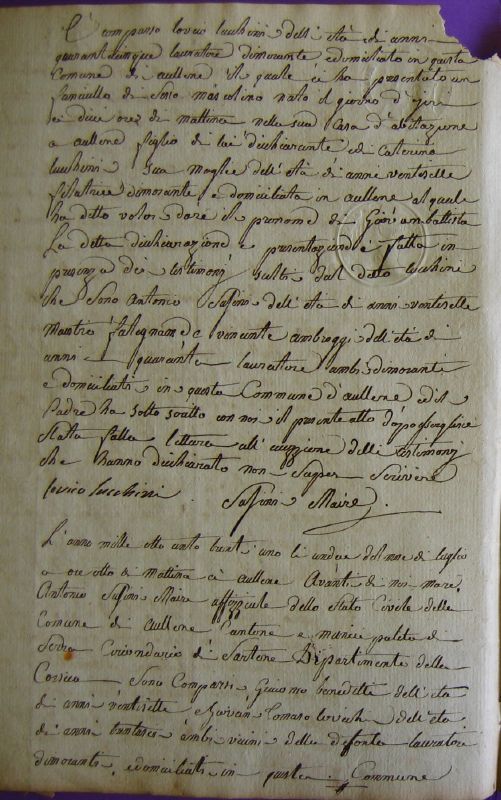 È comparso lovico lucchini dell'età di anni
quarantacinque lauratore dimorante e domiciliato in questa
Comune di aullene il quale ci ha presentato un
fanciullo di sesso mascolino nato il giorno d'jeri
ore di mattina nella sua Casa d'abitazione
a aullene figlio di lui dichiarante e di Catterina
lucchini sua moglie dell'età di anni ventisette
filatrice dimorante e domiciliata in aullene al quale
ha detto voler dare il prenome di Gioví ambattista
La detta dichiarazione e presentazione è fatta in
presenza dei testimonj scelti dal detto lucchini
che sono Antonio Susini dell'età di anni ventisette
Mastro falegname e vincente ambroggi dell'età di
anni quaranta lauratore ambi dimoranti
e domiciliati in questa Commune d'aullene ed il
Padre ha sotto scritto con noi il presente atto doppo essergliene
stata fatta lettura all' delli testimonj
che hanno dichiarato non Saper Scrivere
lovico lucchini Susini Maire
L'anno mille otto cento vent' uno li undeci del mese di luglio
a ore otto di mattina à aullene Avanti di noi mare
Antonio Susini Maire affiziale dello Stato Civile della
Comune di aullene Cantone e municipalita di
Serra Circondario di Sartene Dipartimento della
Corsica Sono Comparsi Giacomo benedetti dell'età
di anni ventisette e Giovan Tomaso dell'età
di anni trentasei ambi vicini della defonta lauratori
dimoranti e domiciliati in questa Commune